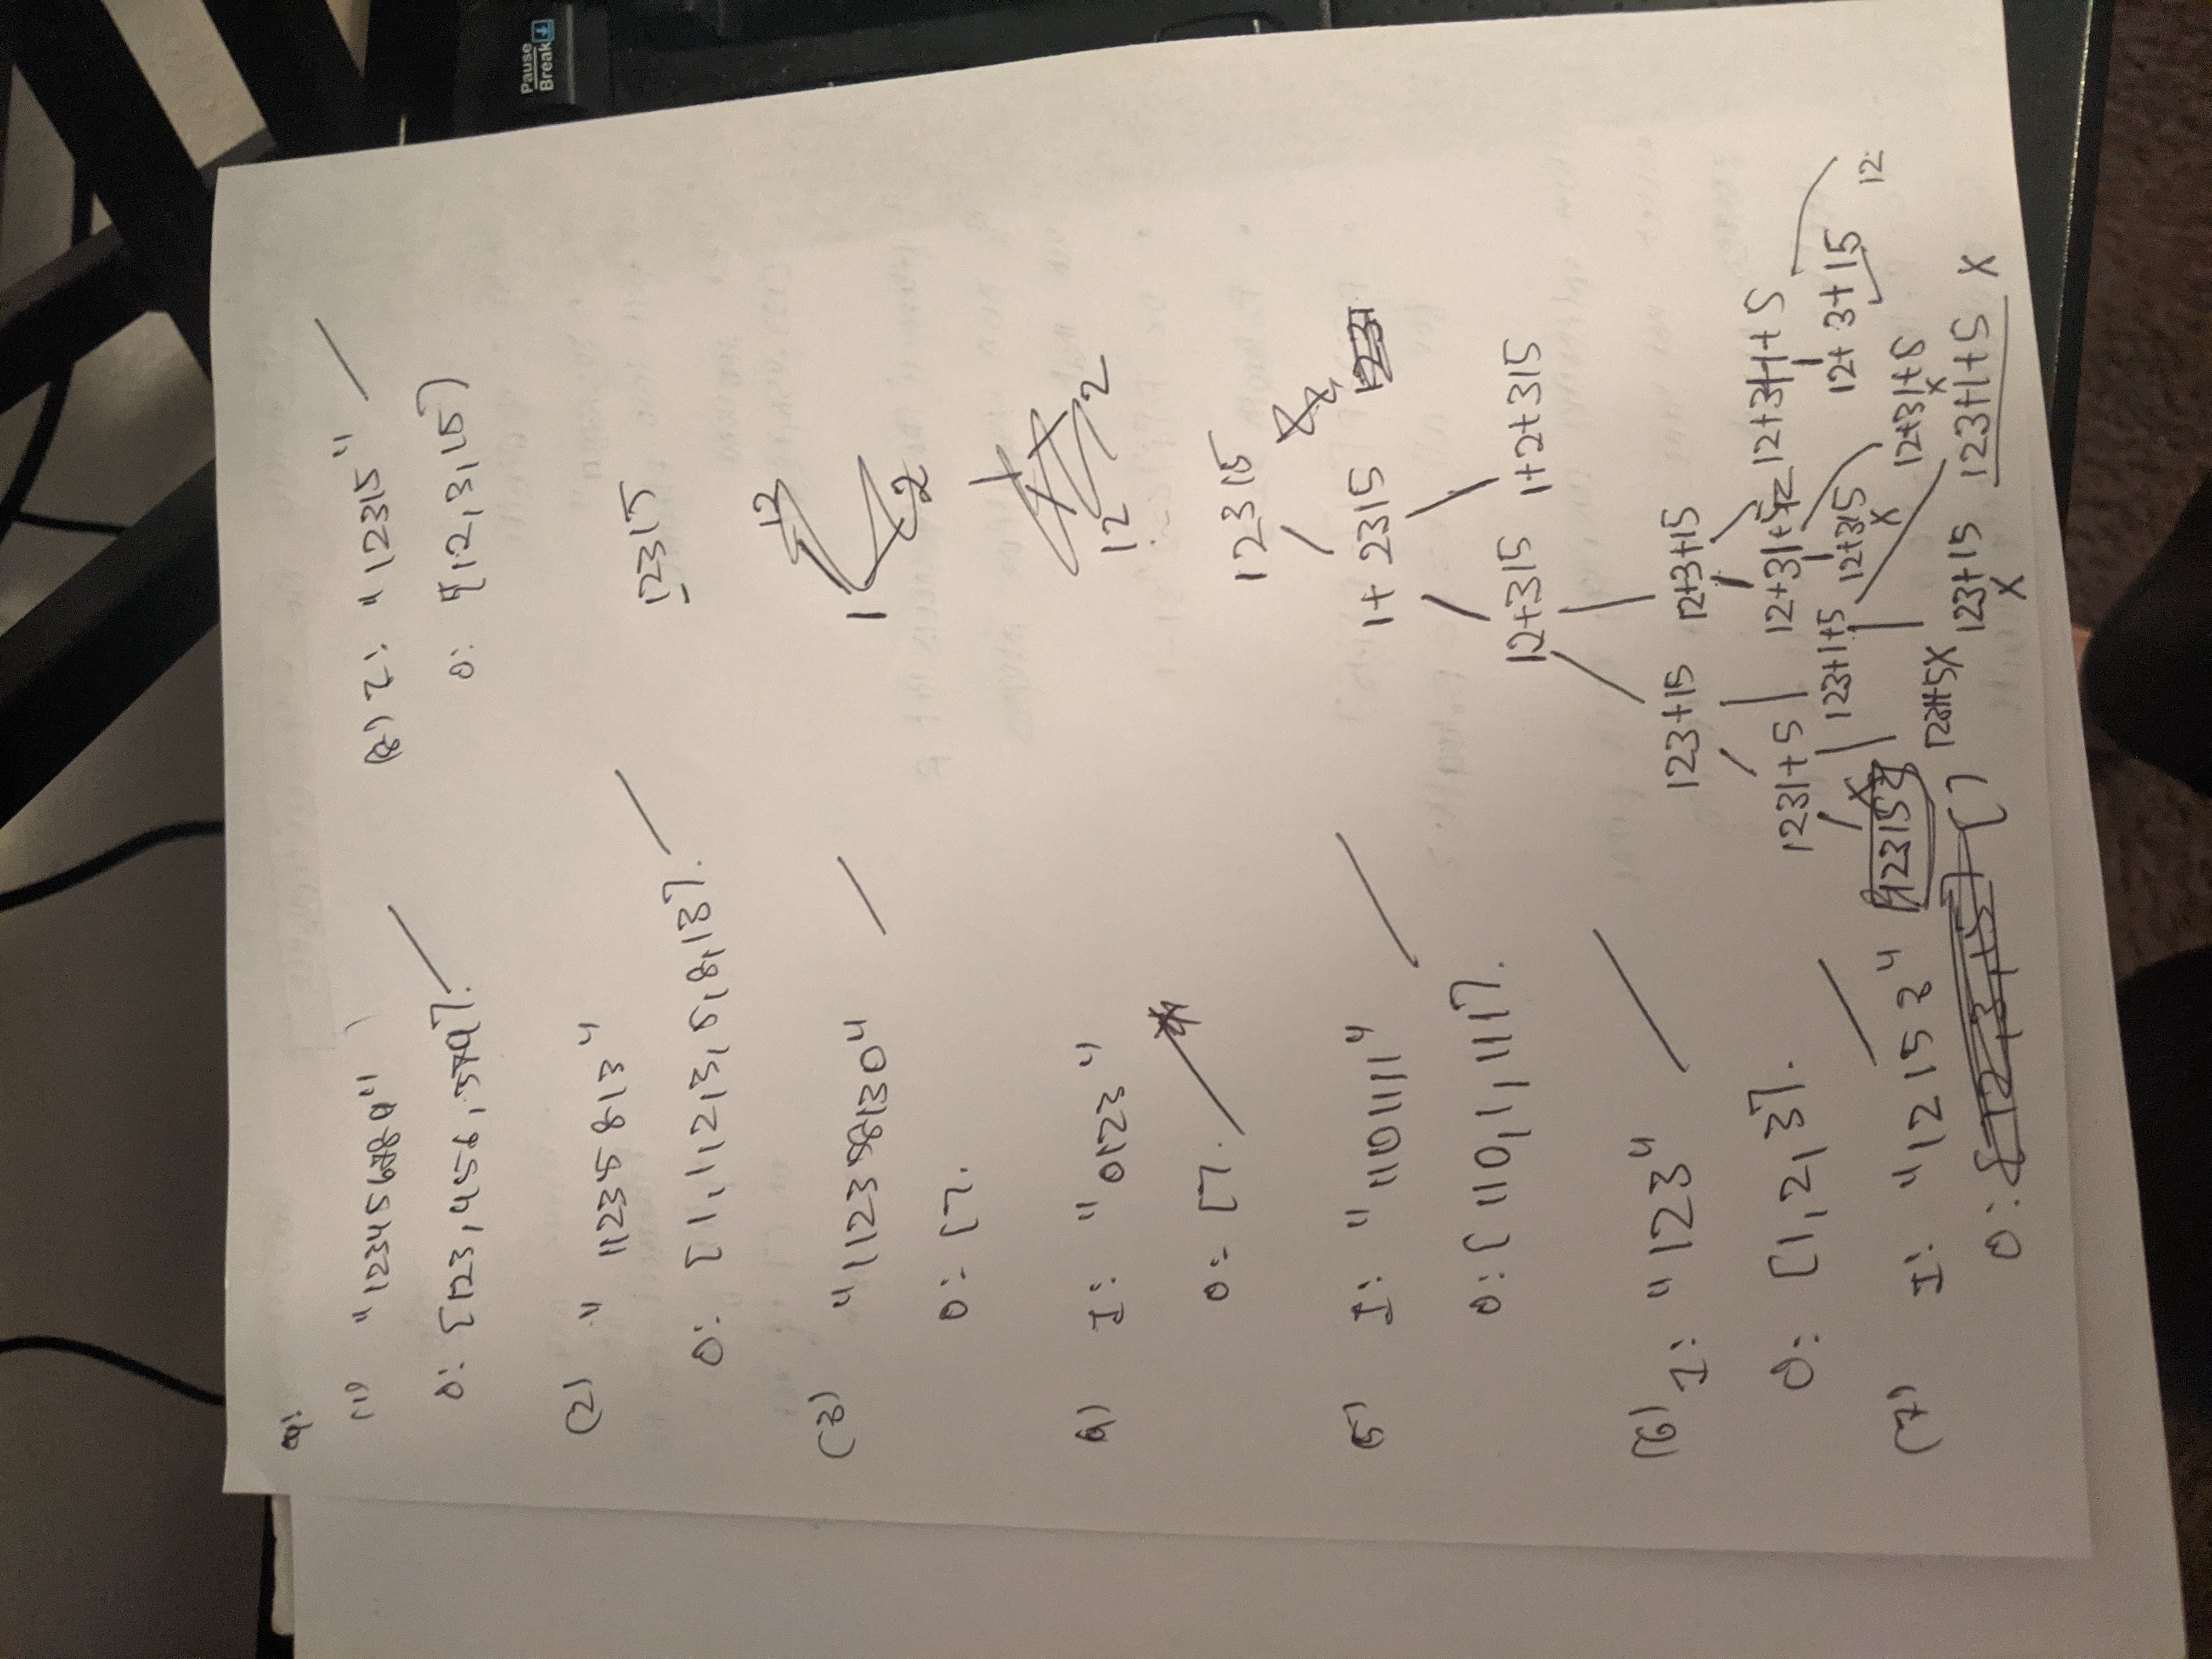 (1) "123456789"
O: [123, 456, 579].
(2) "11235813"
O: [1, 1, 2, 3, 5, 8, 13].
(3) "112358130"
O: [].
4) I: "0123"
O: [].
(5) I: "1101111"
O: [110, 1, 111].
(6) I: "123"
O: [1, 2, 3].
(7) I: "12153"
O: [12, 3, 15] []
(8) I: "12315"
O: [12, 3, 15]
12315
12
1
2
1
12 2
12315
1 + 2315 1231
12+315 1+2+315
123+15 12+3+15
1231+5 12+31+5 12+3+1+5
123+1+5 12+315 x 12+3+15 ✓ 12
12315 x 12+31+5 x
1231+5 x 123+15 x 123+1+5 x
Pause
Break